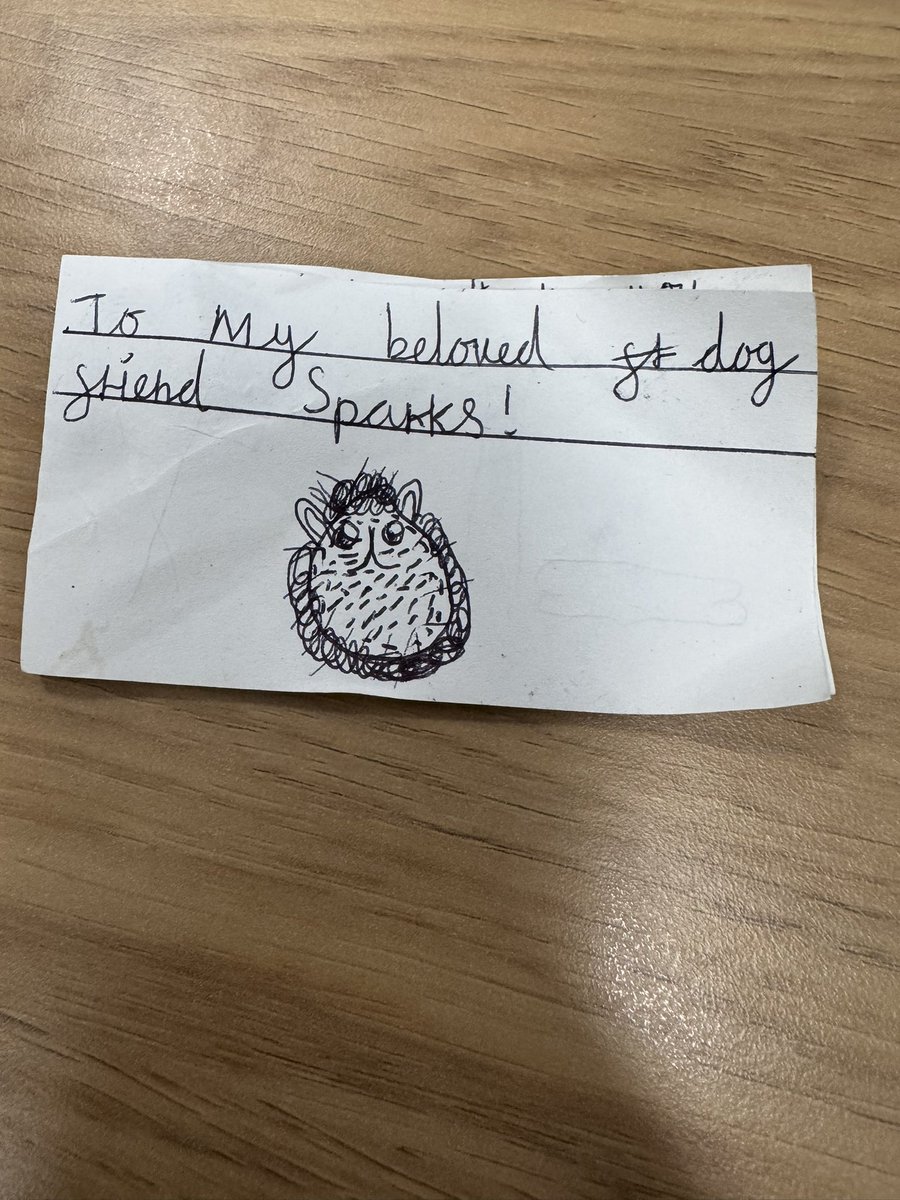 To My beloved dog
friend Sparks!